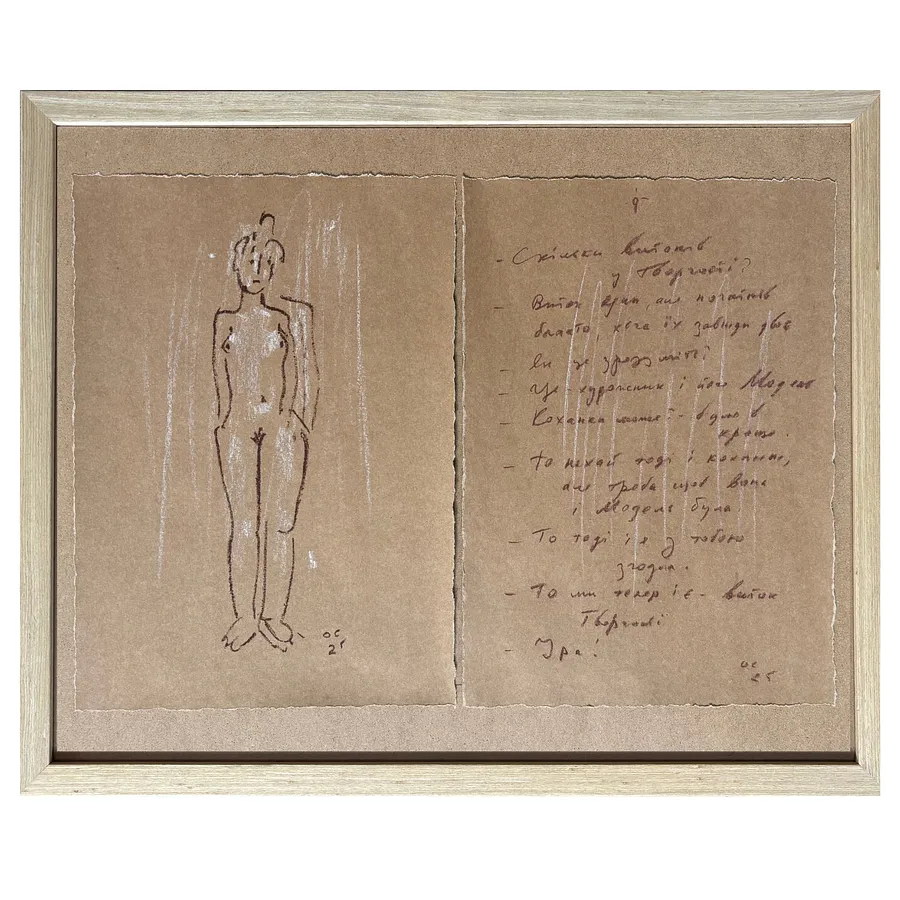 ОС
25
9
- Скільки витоків
у Творчості?
- Виток один, але початків
багато, хоча їх завжди двоє
- Як це зрозуміти?
- Це - художник і його Модель
- Коханка може? - було б
краще.
- То нехай тоді і коханка,
але треба щоб вона
і Модель була
- То тоді і я з тобою
згодна.
- То ми тепер і є - виток
Творчості
- Ура!
ОС
25